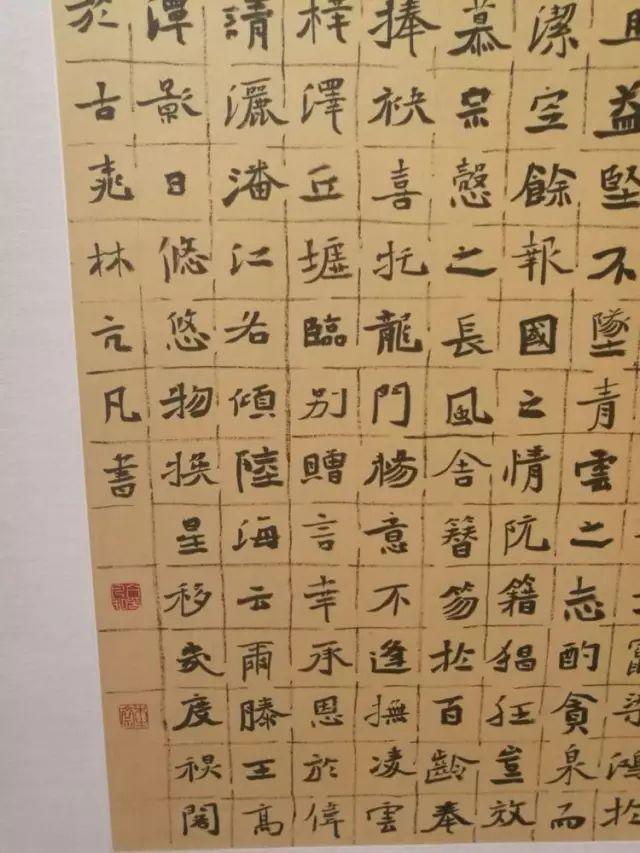 鴻於
且益堅不墜青雲之志酌貪泉而
潔空餘報國之情阮籍猖狂豈效
慕宗愨之長風舍簪笏於百齡奉
捧袂喜托龍門楊意不逢撫凌雲
梓澤丘墟臨別贈言幸承恩於偉
請灑潘江各傾陸海云爾滕王高
潭影日悠悠物換星移幾度秋閣
於古林亢凡書